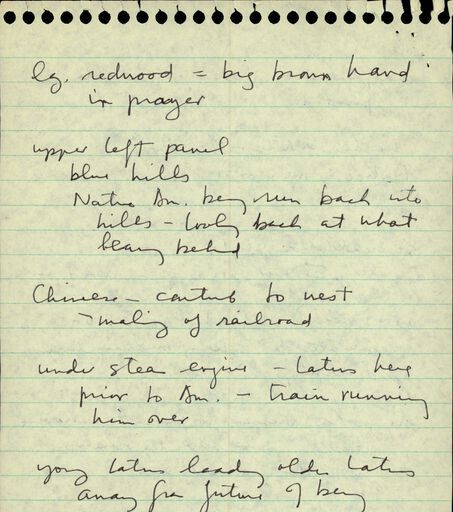 eg. redwood = big brown hand
in prayer
upper left panel
blue hills
Native Am. being run back into
hills - looking back at what
leaving behind
Chinese - contrib to west
- making of railroad
under steam engine - Latino here
prior to Am. - train running
him over
young Latino leading older Latino
away from future of being